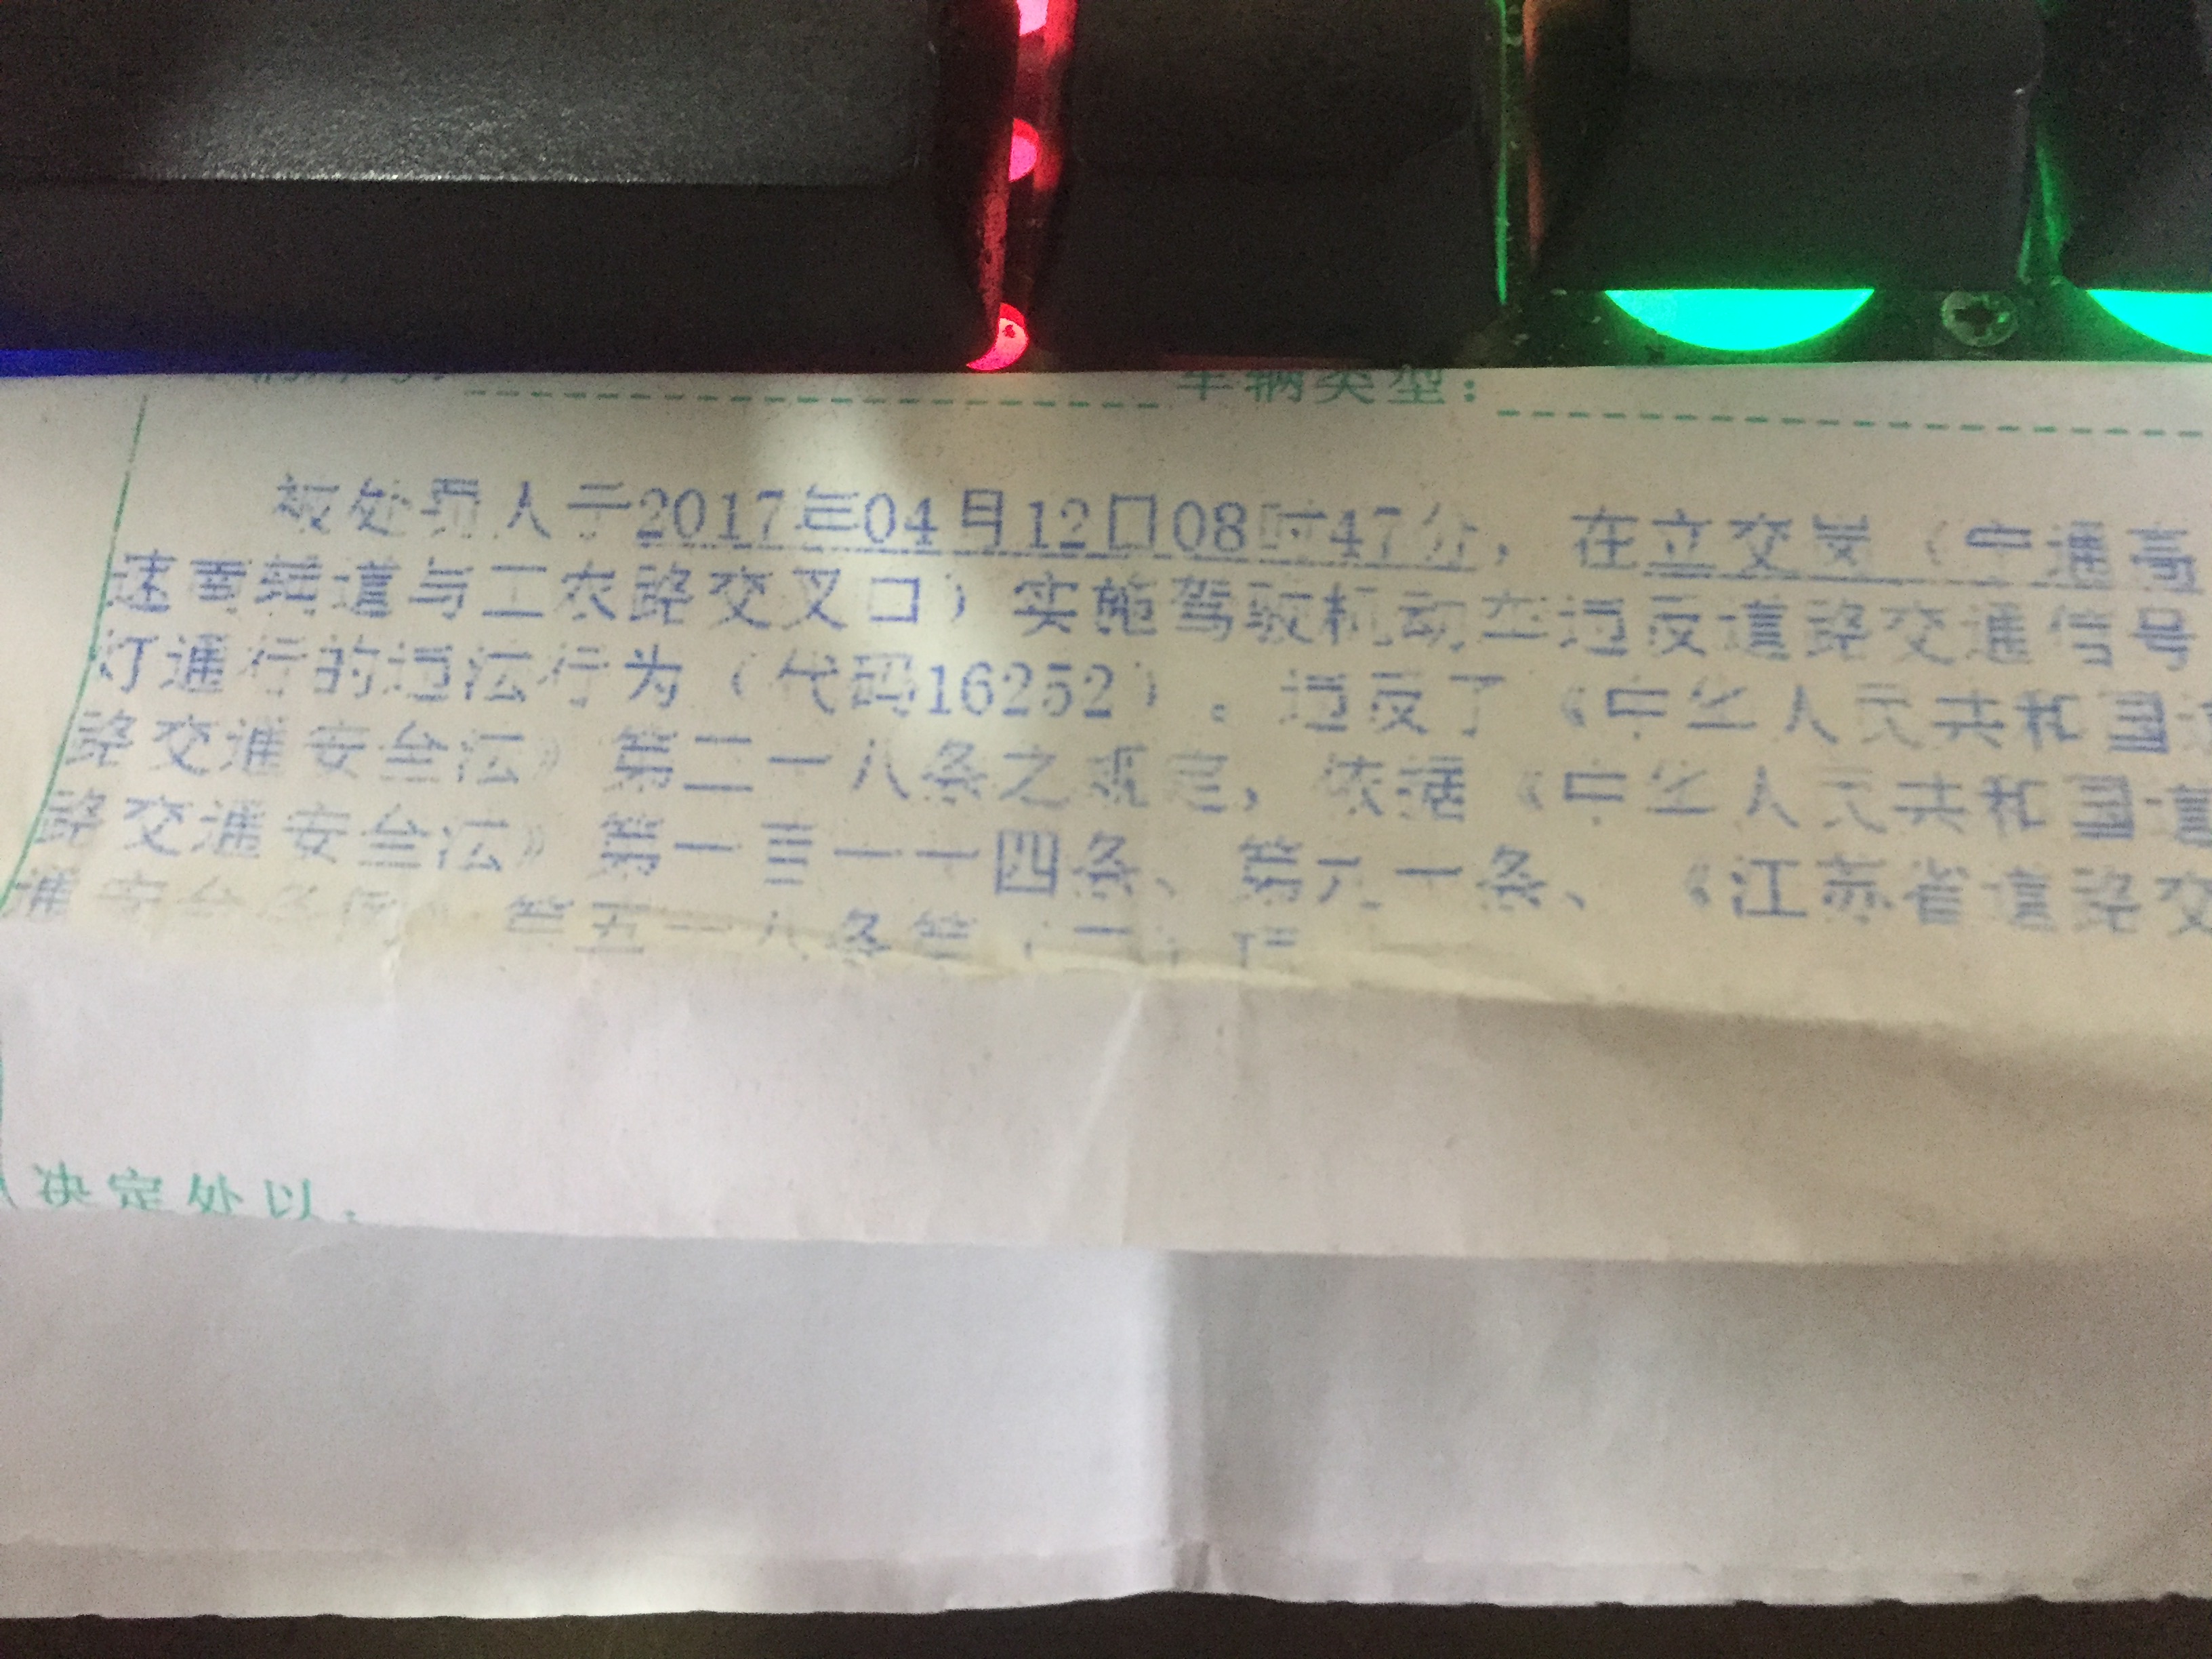 车辆类型：
被处罚人于2017年04月12日08时47分，在立交岗（宁通高
速南辅道与工农路交叉口）实施驾驶机动车违反道路交通信号
灯通行的违法行为（代码16252）。违反了《中华人民共和国道
路交通安全法》第二十八条之规定，依据《中华人民共和国道
路交通安全法》第一百一十四条、第九十条、《江苏省道路交
通安全条例》第五十八条第（二）项
决定处以：